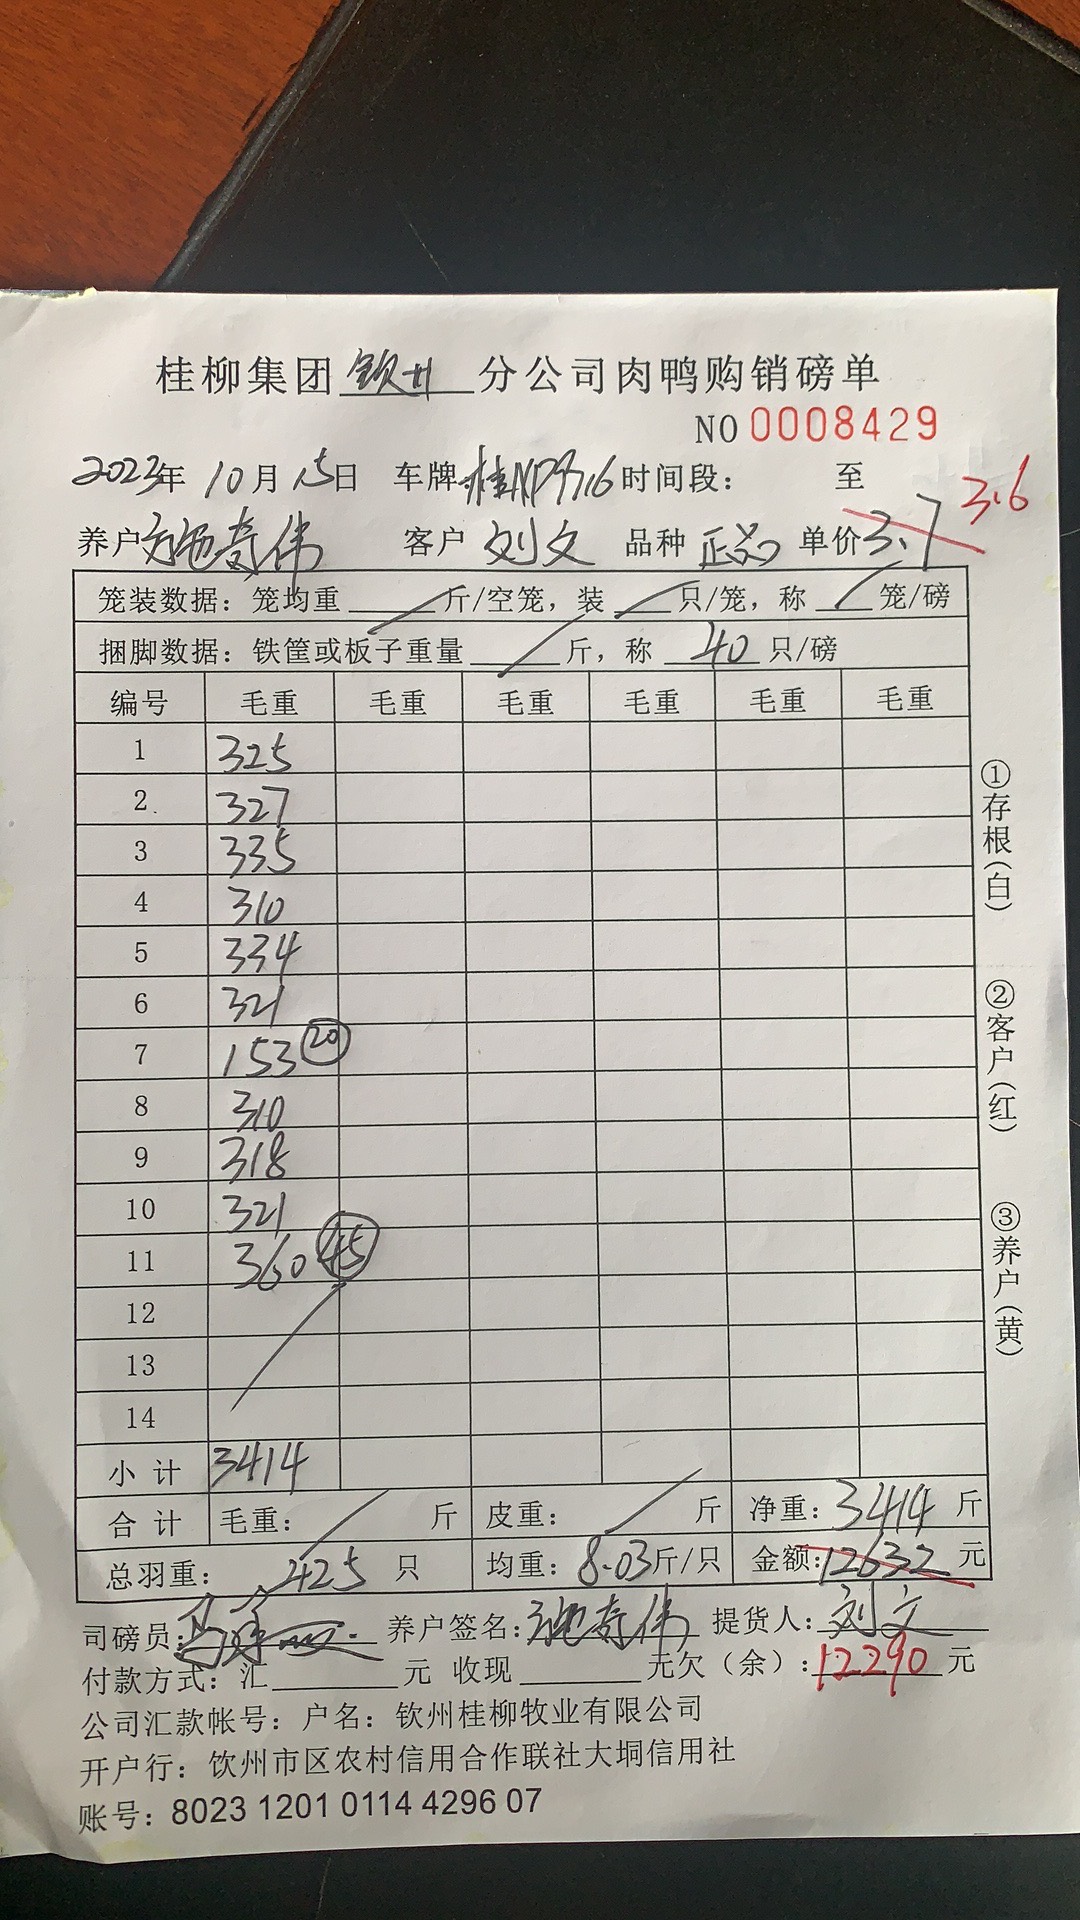 桂柳集团钦州分公司肉鸭购销磅单
NO 0008429
2023年 10月 15日 车牌: 时间段: 至
养户 施奇伟 客户 刘文 品种 正品 单价 3.7 3.6
笼装数据: 笼均重 斤/空笼, 装 只/笼, 称 笼/磅
捆脚数据: 铁筐或板子重量 斤, 称 40 只/磅
编号 毛重 毛重 毛重 毛重 毛重 毛重
1 325
2 327
3 335
4 310
5 334
6 321
7 153 20
8 310
9 318
10 321
11 360 45
12
13
14
小计 3414
合计 毛重: 斤 皮重: 斤 净重: 3414 斤
总羽重: 425 只 均重: 8.03 斤/只 金额: 12632 元
司磅员: 养户签名: 施奇伟 提货人: 刘文
付款方式: 汇 元 收现 元欠(余): 12290 元
公司汇款帐号: 户名: 钦州桂柳牧业有限公司
开户行: 饮州市区农村信用合作联社大垌信用社
账号: 8023 1201 0114 4296 07
①存根(白)
②客户(红)
③养户(黄)